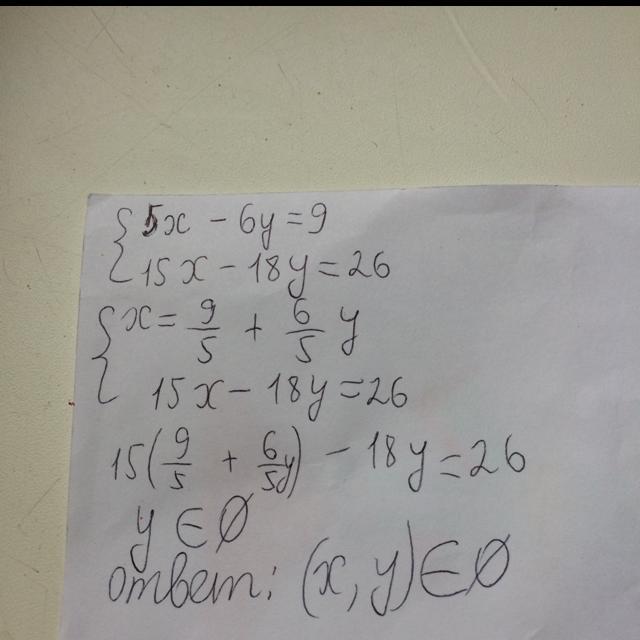 { 5x - 6y = 9
{ 15x - 18y = 26
{ x = 9/5 + 6/5 y
{ 15x - 18y = 26
15(9/5 + 6/5 y) - 18y = 26
y ∈ ∅
ответ: (x, y) ∈ ∅